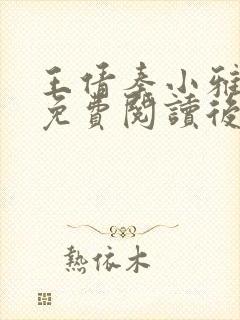 王倩秦小雅
免費閱讀後
熱依木